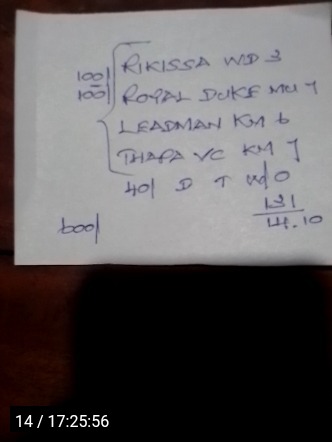 RIKISSA WD 3
100/
100/
ROYAL DUKE MU 7
LEADMAN KM 6
THAPA VC KM 7
40/ D T W/O
131
14.10
600/
14 / 17:25:56